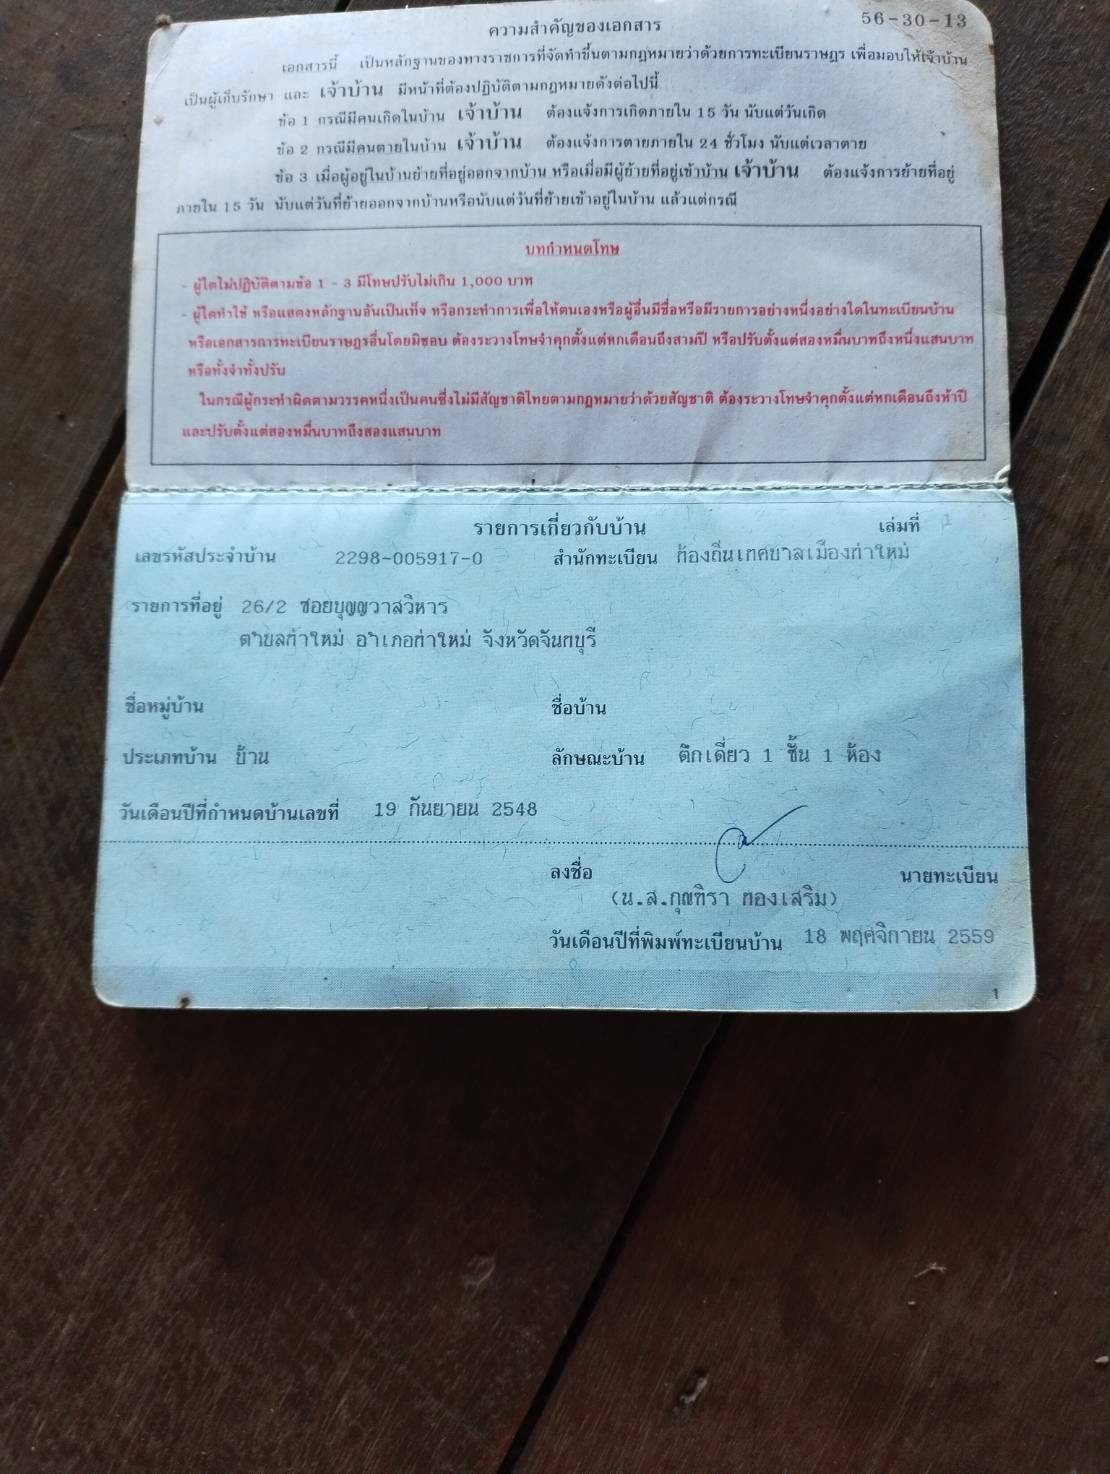 56-30-13
ความสำคัญของเอกสาร
เอกสารนี้ เป็นหลักฐานของทางราชการที่จัดทำขึ้นตามกฎหมายว่าด้วยการทะเบียนราษฎร เพื่อมอบให้เจ้าบ้าน
เป็นผู้เก็บรักษา และ เจ้าบ้าน มีหน้าที่ต้องปฏิบัติตามกฎหมายดังต่อไปนี้
ข้อ 1 กรณีมีคนเกิดในบ้าน เจ้าบ้าน ต้องแจ้งการเกิดภายใน 15 วัน นับแต่วันเกิด
ข้อ 2 กรณีมีคนตายในบ้าน เจ้าบ้าน ต้องแจ้งการตายภายใน 24 ชั่วโมง นับแต่เวลาตาย
ข้อ 3 เมื่อผู้อยู่ในบ้านย้ายที่อยู่ออกจากบ้าน หรือเมื่อมีผู้ย้ายที่อยู่เข้าบ้าน เจ้าบ้าน ต้องแจ้งการย้ายที่อยู่
ภายใน 15 วัน นับแต่วันที่ย้ายออกจากบ้านหรือนับแต่วันที่ย้ายเข้าอยู่ในบ้าน แล้วแต่กรณี
บทกำหนดโทษ
- ผู้ใดไม่ปฏิบัติตามข้อ 1 - 3 มีโทษปรับไม่เกิน 1,000 บาท
- ผู้ใดทำ ใช้ หรือแสดงหลักฐานอันเป็นเท็จ หรือกระทำการเพื่อให้ตนเองหรือผู้อื่นมีชื่อหรือมีรายการอย่างหนึ่งอย่างใดในทะเบียนบ้าน
หรือเอกสารการทะเบียนราษฎรอื่นโดยมิชอบ ต้องระวางโทษจำคุกตั้งแต่หกเดือนถึงสามปี หรือปรับตั้งแต่สองหมื่นบาทถึงหนึ่งแสนบาท
หรือทั้งจำทั้งปรับ
ในกรณีผู้กระทำผิดตามวรรคหนึ่งเป็นคนซึ่งไม่มีสัญชาติไทยตามกฎหมายว่าด้วยสัญชาติ ต้องระวางโทษจำคุกตั้งแต่หกเดือนถึงห้าปี
และปรับตั้งแต่สองหมื่นบาทถึงสองแสนบาท
รายการเกี่ยวกับบ้าน เล่มที่ 1
เลขรหัสประจำบ้าน 2298-005917-0 สำนักทะเบียน ท้องถิ่นเทศบาลเมืองท่าใหม่
รายการที่อยู่ 26/2 ซอยบุญญวาสวิหาร
ตำบลท่าใหม่ อำเภอท่าใหม่ จังหวัดจันทบุรี
ชื่อหมู่บ้าน ชื่อบ้าน
ประเภทบ้าน บ้าน ลักษณะบ้าน ตึกเดี่ยว 1 ชั้น 1 ห้อง
วันเดือนปีที่กำหนดบ้านเลขที่ 19 กันยายน 2548
ลงชื่อ นายทะเบียน
(น.ส.กุณฑิรา ทองเสริม)
วันเดือนปีที่พิมพ์ทะเบียนบ้าน 18 พฤศจิกายน 2559
1